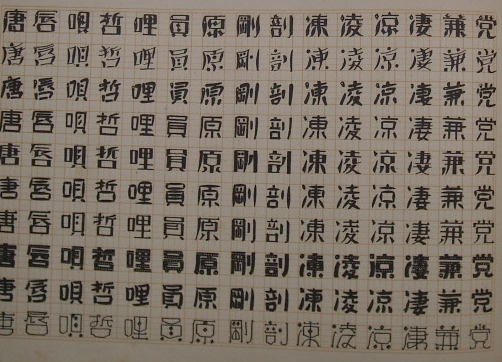 唐唇唄哲哩員原剛剖凍凌凉凄兼党
唐唇唄哲哩員原剛剖凍凌凉凄兼党
唐唇唄哲哩員原剛剖凍凌凉凄兼党
唐唇唄哲哩員原剛剖凍凌凉凄兼党
唐唇唄哲哩員原剛剖凍凌凉凄兼党
唐唇唄哲哩員原剛剖凍凌凉凄兼党
唐唇唄哲哩員原剛剖凍凌凉凄兼党
唐唇唄哲哩員原剛剖凍凌凉凄兼党
唐唇唄哲哩員原剛剖凍凌凉凄兼党
唐唇唄哲哩員原剛剖凍凌凉凄兼党